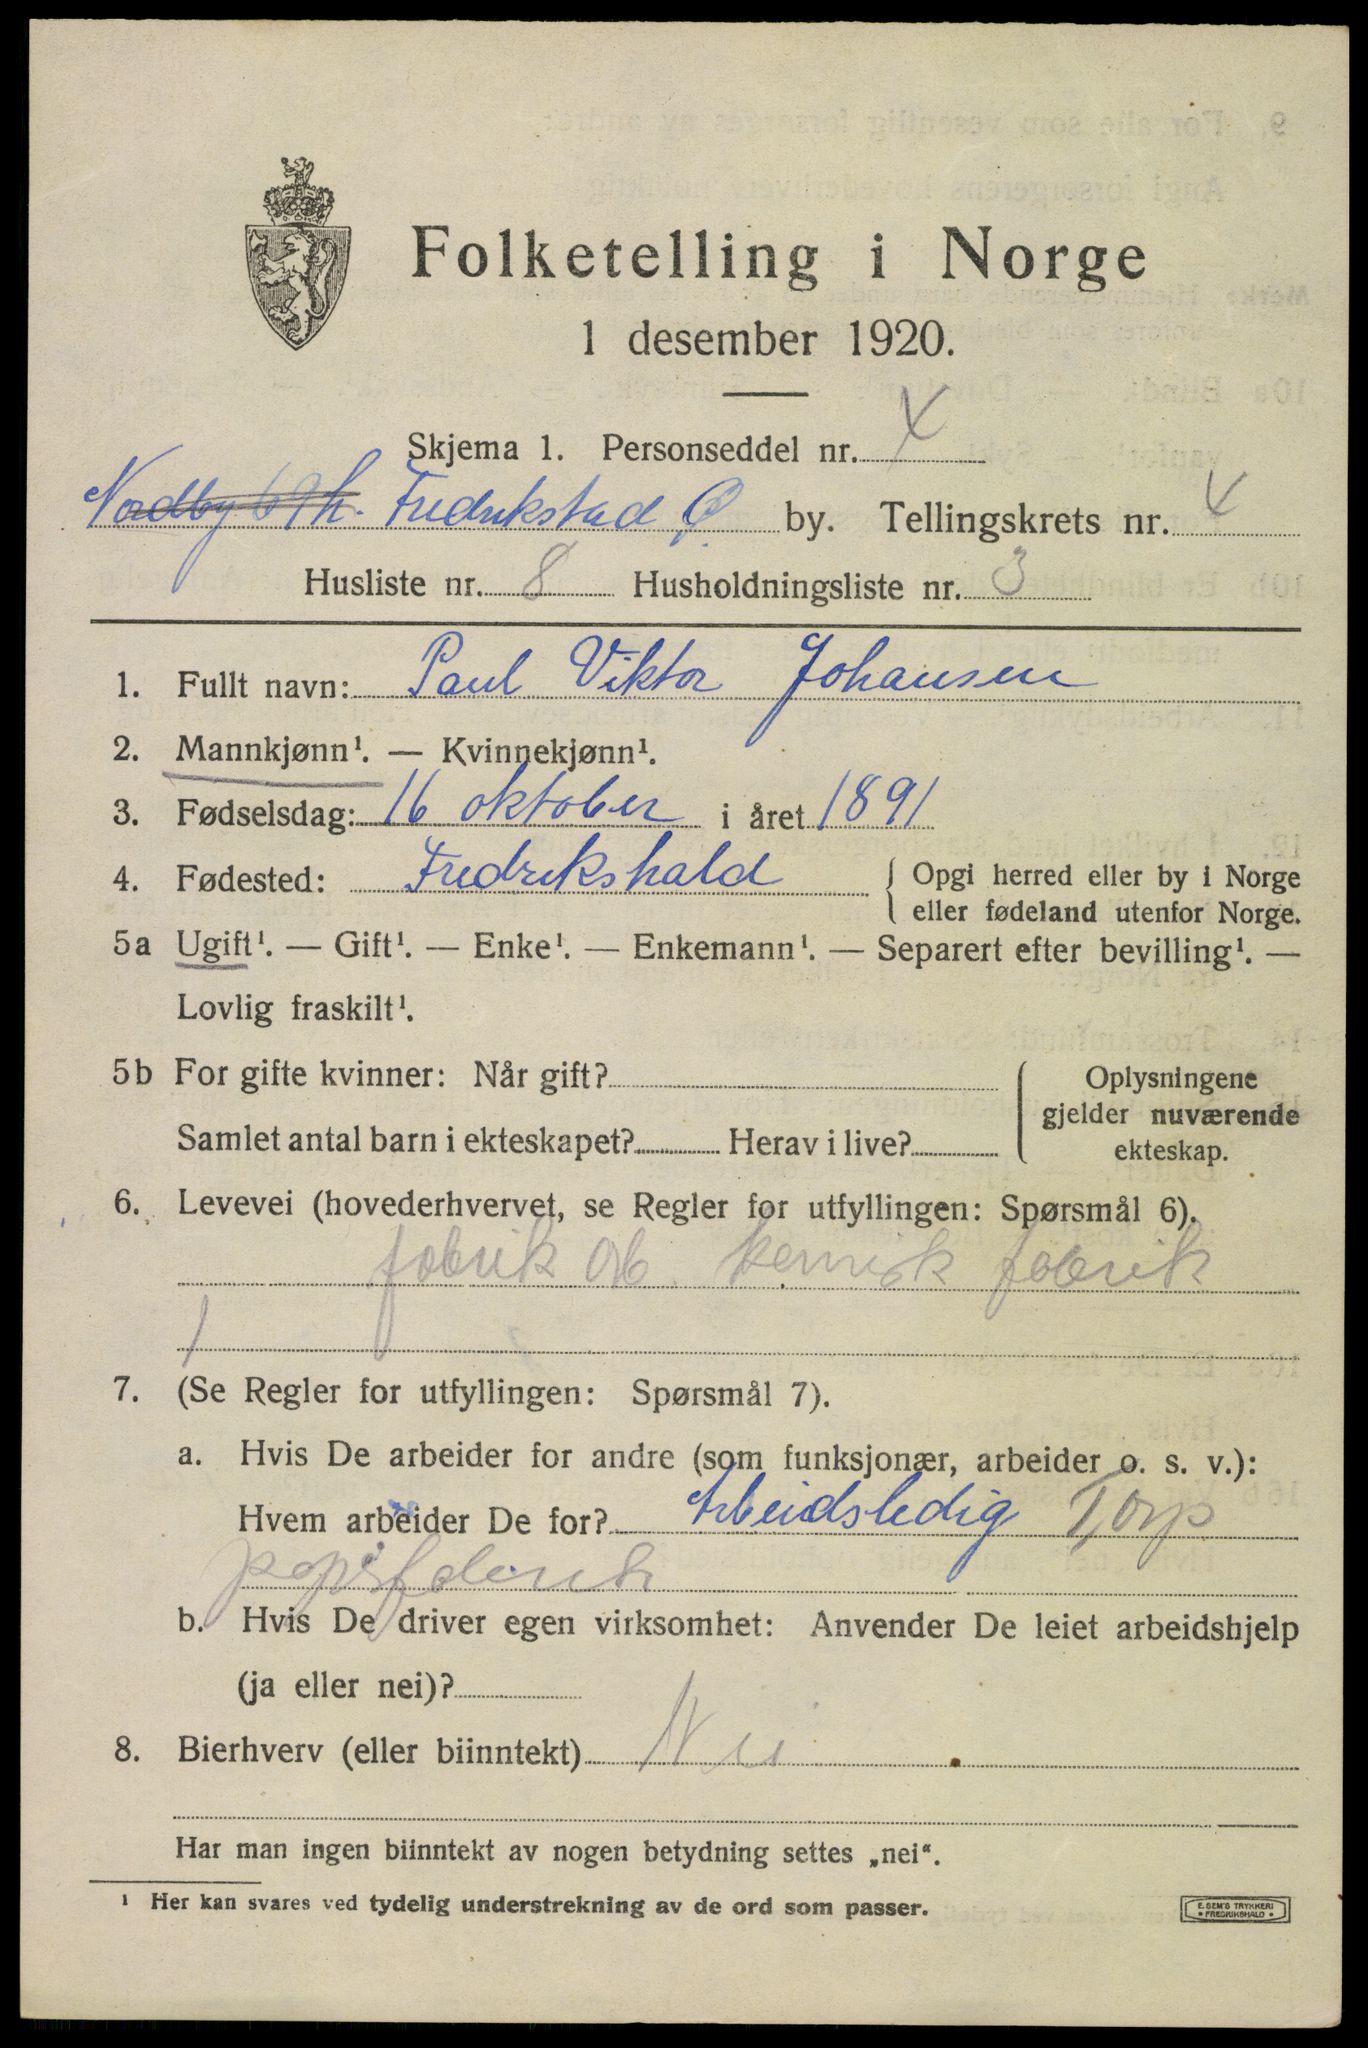 Folketelling i Norge
1 desember 1920.
Skjema 1. Personseddel nr. 4
Nordby Fredrikstad Ø by. Tellingskrets nr. 4
Husliste nr. 8 Husholdningsliste nr. 3
1. Fullt navn: Paul Viktor Johansen
2. Mannkjønn¹. — Kvinnekjønn¹.
3. Fødselsdag: 16 oktober i året 1891
4. Fødested: Fredrikshald { Opgi herred eller by i Norge
eller fødeland utenfor Norge.
5a Ugift¹. — Gift¹. — Enke¹. — Enkemann¹. — Separert efter bevilling¹. —
Lovlig fraskilt¹.
5b For gifte kvinner: Når gift? Oplysningene
gjelder nuværende
Samlet antal barn i ekteskapet? Herav i live? ekteskap.
6. Levevei (hovederhvervet, se Regler for utfyllingen: Spørsmål 6).
fabrik arb. kemisk fabrik
1
7. (Se Regler for utfyllingen: Spørsmål 7).
a. Hvis De arbeider for andre (som funksjonær, arbeider o. s. v.):
Hvem arbeider De for? Arbeidsledig Torp
papirfabrik
b. Hvis De driver egen virksomhet: Anvender De leiet arbeidshjelp
(ja eller nei)?
8. Bierhverv (eller biinntekt) Nei
Har man ingen biinntekt av nogen betydning settes „nei“.
¹ Her kan svares ved tydelig understrekning av de ord som passer.
E. SEM'S TRYKKERI
• FREDRIKSHALD •